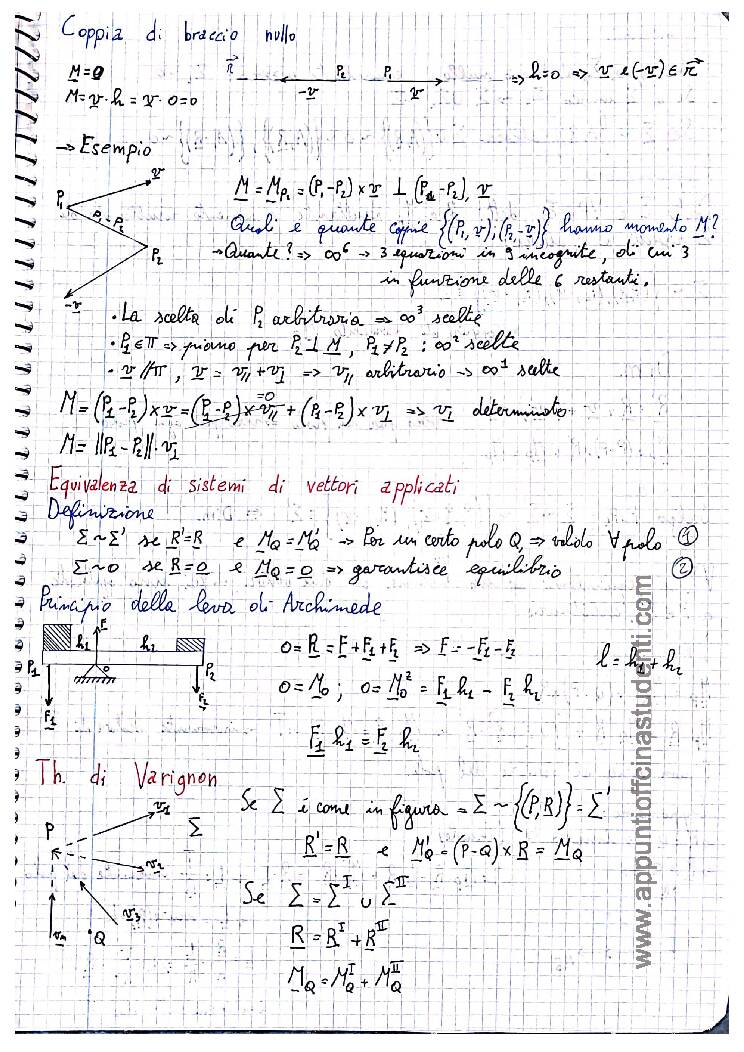 Coppia di braccio nullo
M=0
M=v·h = v·0=0
r⃗ P2 P1 -v v ⇒ h=0 ⇒ v e (-v) ∈ r⃗
→ Esempio
P1 v P1-P2 P2 -v
M = M_P2 = (P1-P2) × v ⊥ (P1-P2), v
Quali e quante coppie {(P1, v); (P2, -v)} hanno momento M?
→ Quante? ⇒ ∞⁶ → 3 equazioni in 9 incognite, di cui 3
in funzione delle 6 restanti.
· La scelta di P2 arbitraria ⇒ ∞³ scelte
· P1 ∈ π ⇒ piano per P2 ⊥ M, P1≠P2 : ∞² scelte
· v // π, v = v// + v⊥ ⇒ v// arbitrario → ∞¹ scelte
M = (P1-P2) × v = (P1-P2) × v// =0 + (P1-P2) × v⊥ ⇒ v⊥ determinato
M = ||P1-P2||·v⊥
Equivalenza di sistemi di vettori applicati
Definizione
Σ~Σ' se R'=R e M_Q = M'_Q → Per un certo polo Q, ⇒ valido ∀ polo ①
Σ~0 se R=0 e M_Q=0 ⇒ garantisce equilibrio ②
Principio della leva di Archimede
h1 F h2 o P1 P2 F1 F2
0=R = F+F1+F2 ⇒ F=-F1-F2
l=h1+h2
0=M_o ; 0=M_o^z = F1 h1 - F2 h2
F1 h1 = F2 h2
Th. di Varignon
P v1 Σ v2 v3 vn Q
Se Σ è come in figura = Σ ~ {(P,R)} = Σ'
R'=R e M'_Q = (P-Q) × R = M_Q
Se Σ = Σ^I ∪ Σ^II
R = R^I + R^II
M_Q = M_Q^I + M_Q^II
www.appuntioffcinastudenti.com